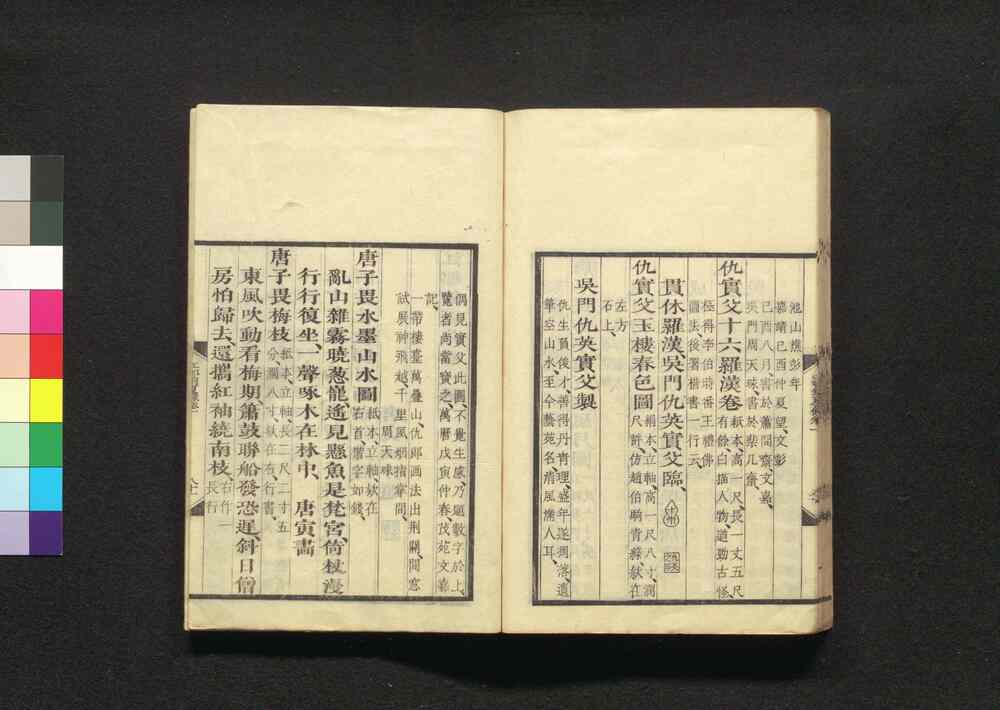 池山樵彭年
嘉靖己酉仲夏望文彭
己酉八月書於蕭閒齋文嘉
吳門周天球書於棐几齋
仇實父十六羅漢卷紙本高一尺長一丈五尺
有餘白描人物遒勁古怪
極得李伯時番王禮佛
圖法後署楷書一行云
貫休羅漢吳門仇英實父臨十州
仇實父玉樓春色圖絹本立軸高一尺八寸濶
尺許仿趙伯駒青綠欵在
左方
石上
吳門仇英實父製
仇生負俊才善得丹青理盛年遂凋落遺
筆空山水至今藝苑名清風滿人耳
偶見實父此圖不覺生感乃題數字於上
覽者尚當寶之萬曆戊寅仲春茂苑文嘉
記
一帶樓臺萬疊山仇郎画法出荆關閒窓
試展神飛越千里風烟指掌間
周天球
唐子畏水墨山水圖紙本立軸欵在
右首楷字如錢
亂山雜霧曉葱蘢遙見懸魚是梵宮倚杖漫
行行復坐一聲啄木在林中 唐寅畵
唐子畏梅枝紙本立軸長二尺二寸五
分濶八寸欵在右行書
東風吹動看梅期簫鼓聯船發恐遲斜日僧
房怕歸去還攜紅袖繞南枝右作一
長行